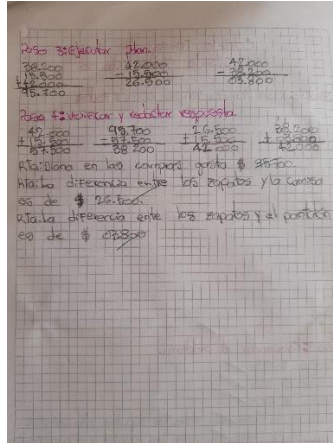 Paso 3: Ejecutar plan.
38.200 42.000 42.000
+ 15.500 - 15.500 - 38.200
42.000 26.500 03.800
95.700
Paso 4: verificar y redactar respuesta
42.000 95.700 26.500 38.200
+ 15.500 - 57.500 + 15.500 + 3.800
57.500 38.200 42.000 42.000
RTa: Diana en las compras gasto $ 95.700.
RTa: La diferencia entre los zapatos y la camisa
es de $ 26.500.
RTa: La diferencia ente los zapatos y el pantalón
es de $ 03.800